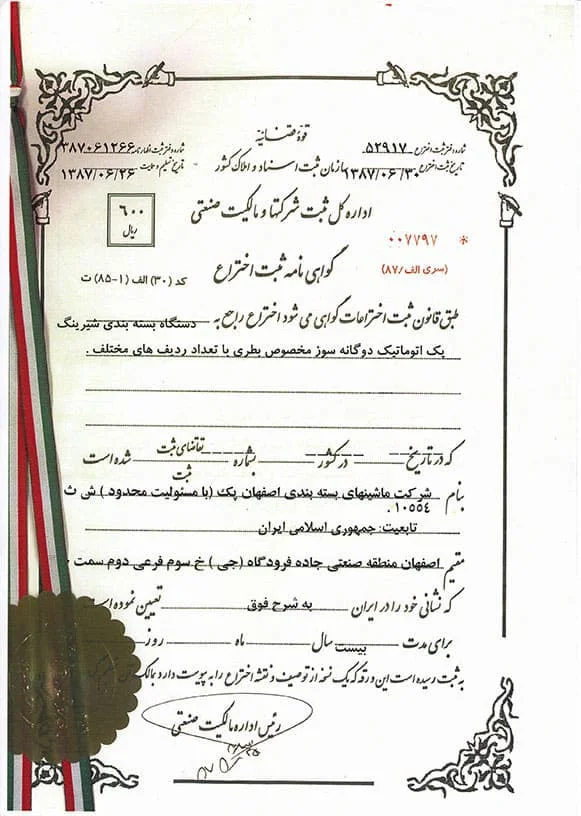 قوهٔ قضائیه
شماره دفتر ثبت اختراع ۵۲۹۱۷
شماره دفتر ثبت اظهارنامه ۳۸۷۰۶۱۲۶۶
سازمان ثبت اسناد و املاک کشور
تاریخ ثبت اختراع ۱۳۸۷/۰۶/۳۰
تاریخ تسلیم و ساعت ۱۳۸۷/۰۶/۲۶
اداره کل ثبت شرکتها و مالکیت صنعتی
۶۰۰
ریال
* ۰۰۷۷۹۷
(سری الف/۸۷)
گواهی نامه ثبت اختراع
کد (۳۰) الف (۱-۸۵) ت
طبق قانون ثبت اختراعات گواهی می شود اختراع راجع به دستگاه بسته بندی شیرینگ
پک اتوماتیک دوگانه سوز مخصوص بطری با تعداد ردیف های مختلف .
که در تاریخ در کشور بشماره تقاضای ثبت شده است
ثبت
بنام شرکت ماشینهای بسته بندی اصفهان پک (با مسئولیت محدود ) ش ث
۱۰۵۵٤ .
تابعیت: جمهوری اسلامی ایران
مقیم اصفهان منطقه صنعتی جاده فرودگاه (جی ) خ سوم فرعی دوم سمت
که نشانی خود را در ایران به شرح فوق تعیین نموده است
برای مدت بیست سال ماه روز
به ثبت رسیده است این ورقه که یک نسخه از توصیف و نقشه اختراع را به پیوست دارد بمالک
رئیس اداره مالکیت صنعتی